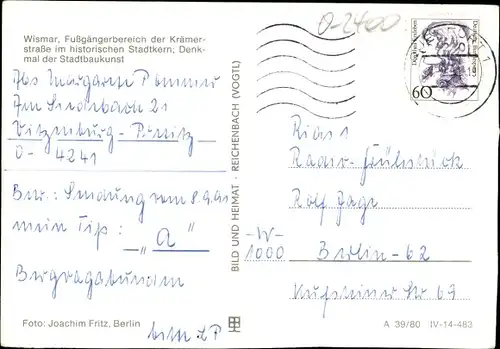 Wismar, Fußgängerbereich der Krämer-
straße im historischen Stadtkern; Denk-
mal der Stadtbaukunst
Abs Margarete Pommer
Am Lindenbach 21
Vitzenburg-
O- 4241
Betr.: Sendung vom 8.9.91
mein Tip:
"a"
BILD UND HEIMAT · REICHENBACH (VOGTL)
Foto: Joachim Fritz, Berlin
O-2400
60
Rias 1
Radio-Frühstück
Rolf
-W-
1000 Berlin-62
Kufsteiner Str 69
A 39/80 IV-14-483